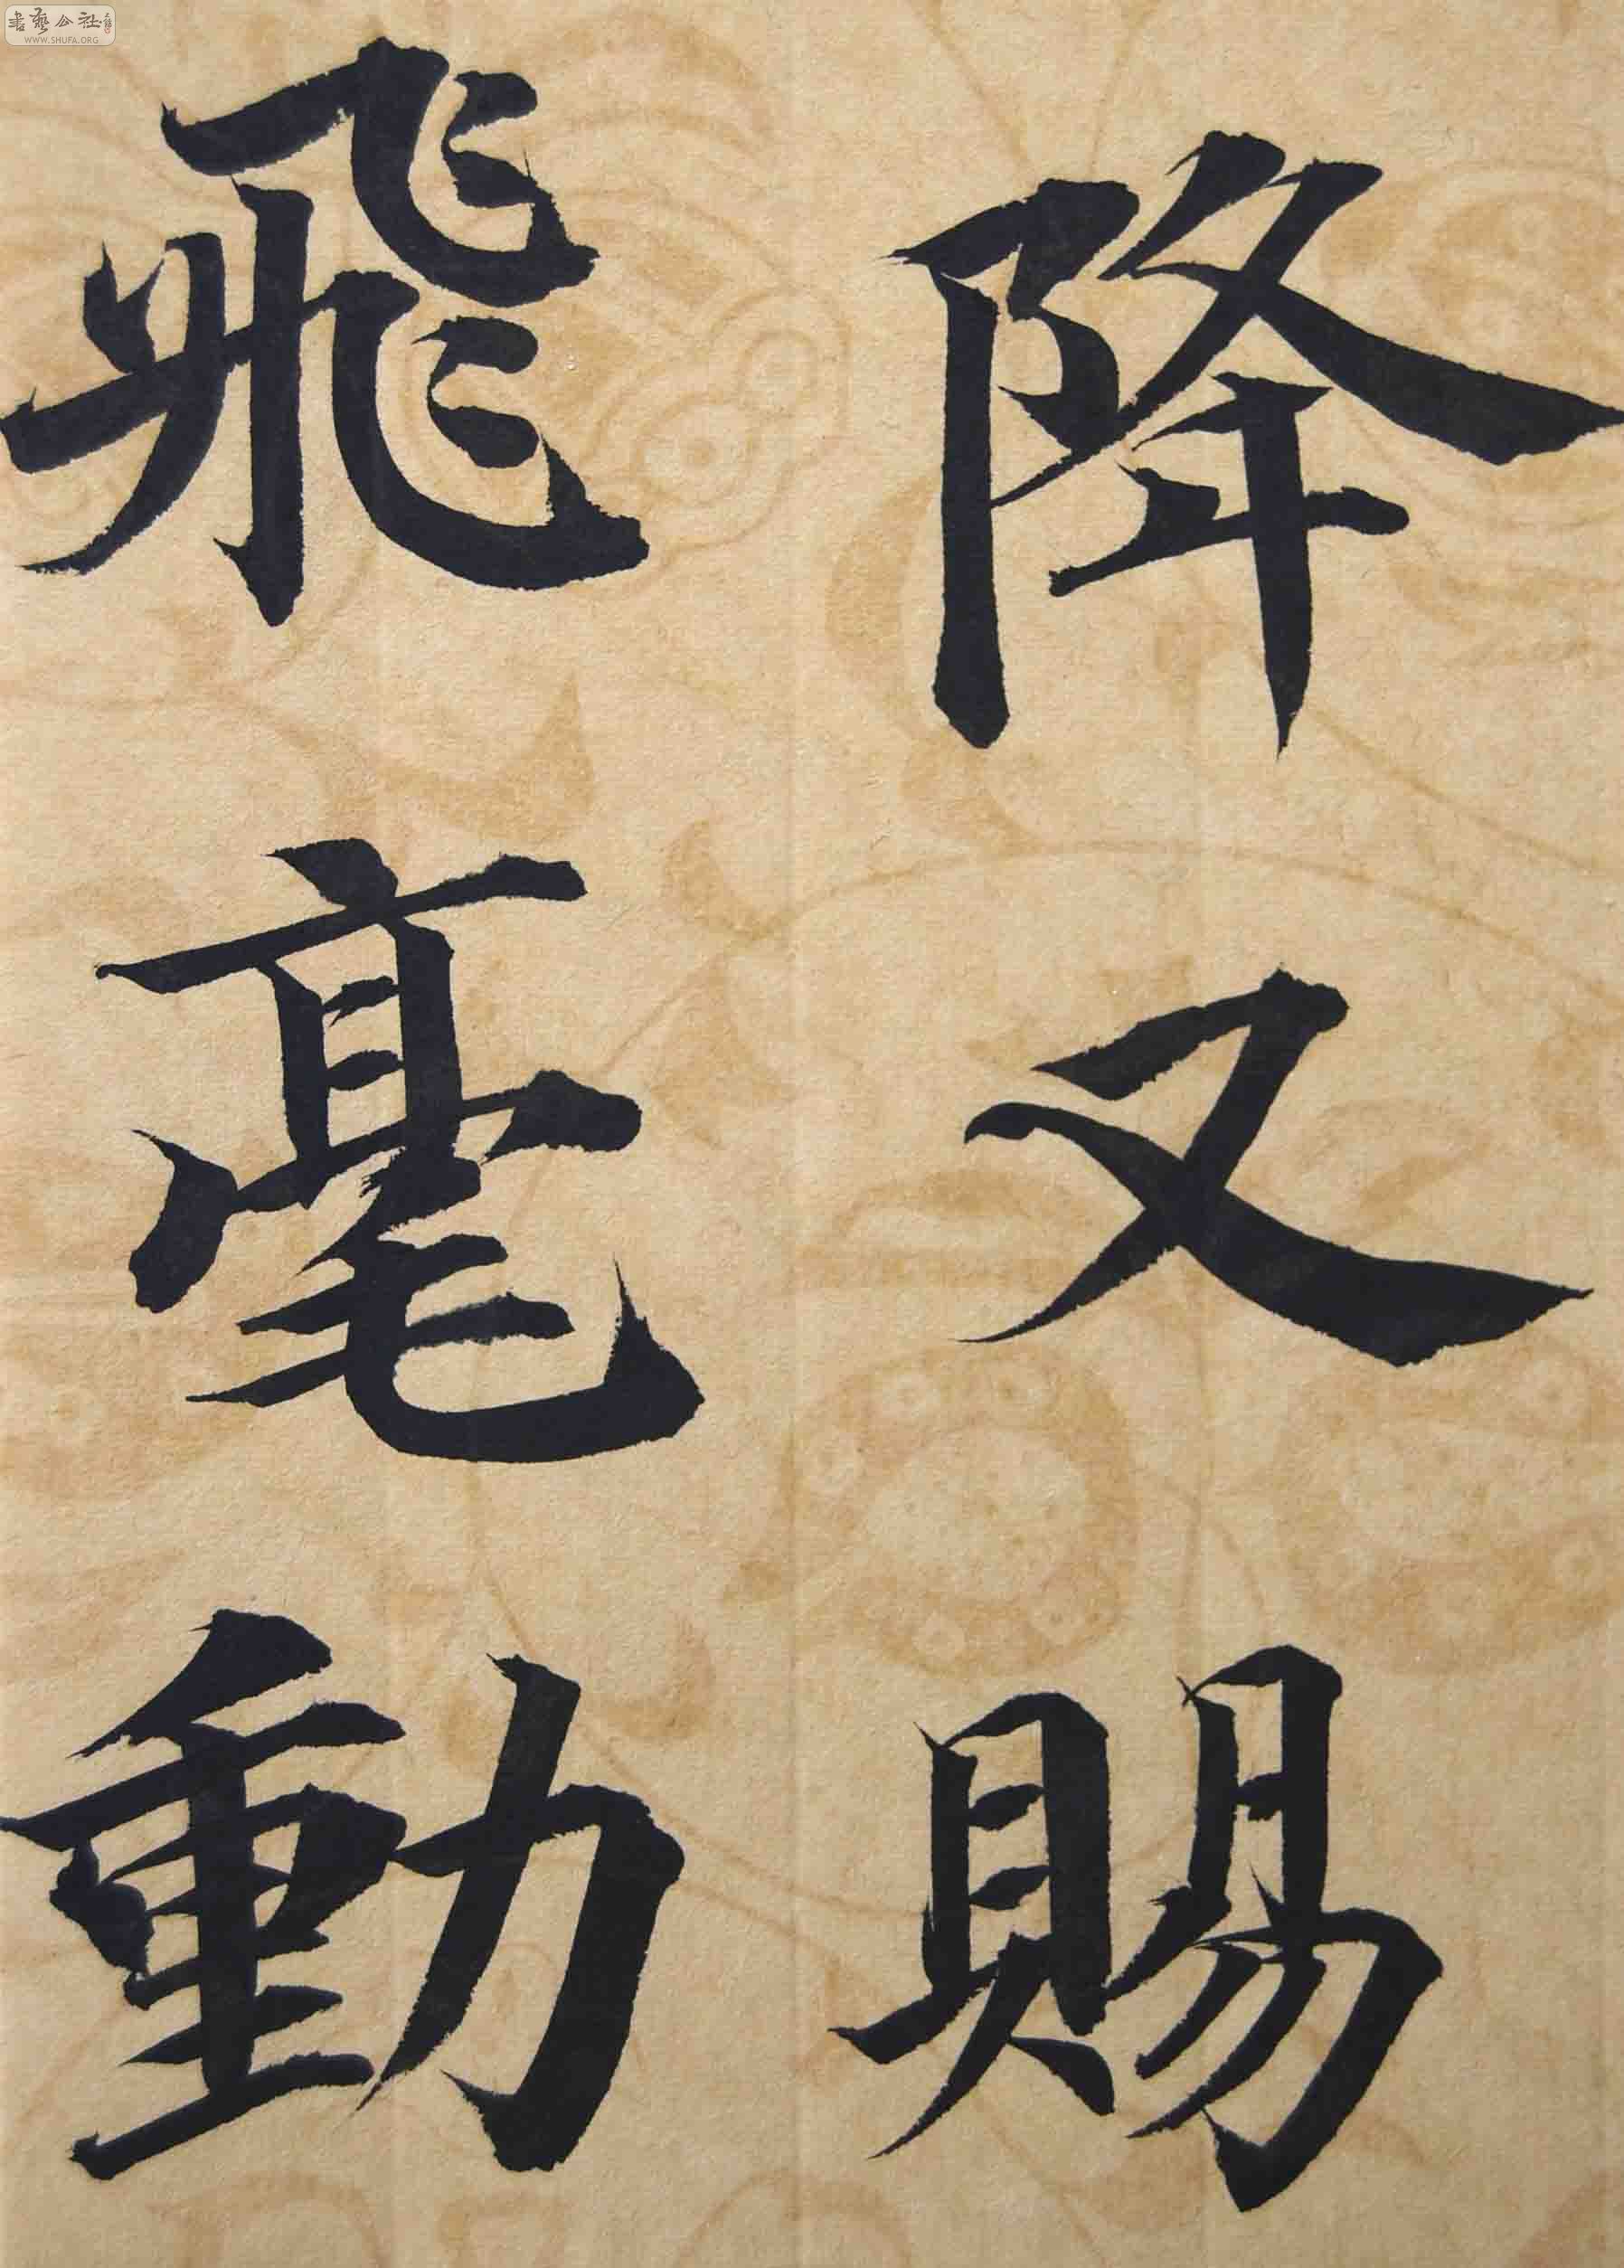 降又賜
飛毫動
書藝公社
WWW.SHUFA.ORG